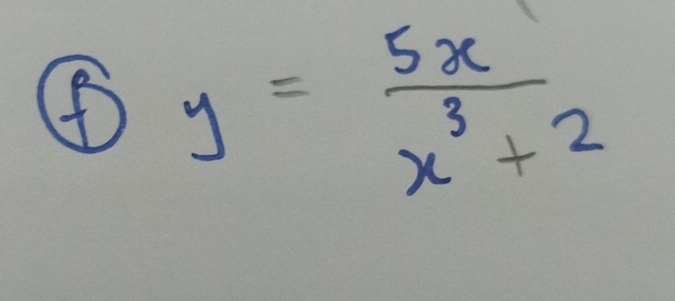 (f) y = 5x / (x³ + 2)